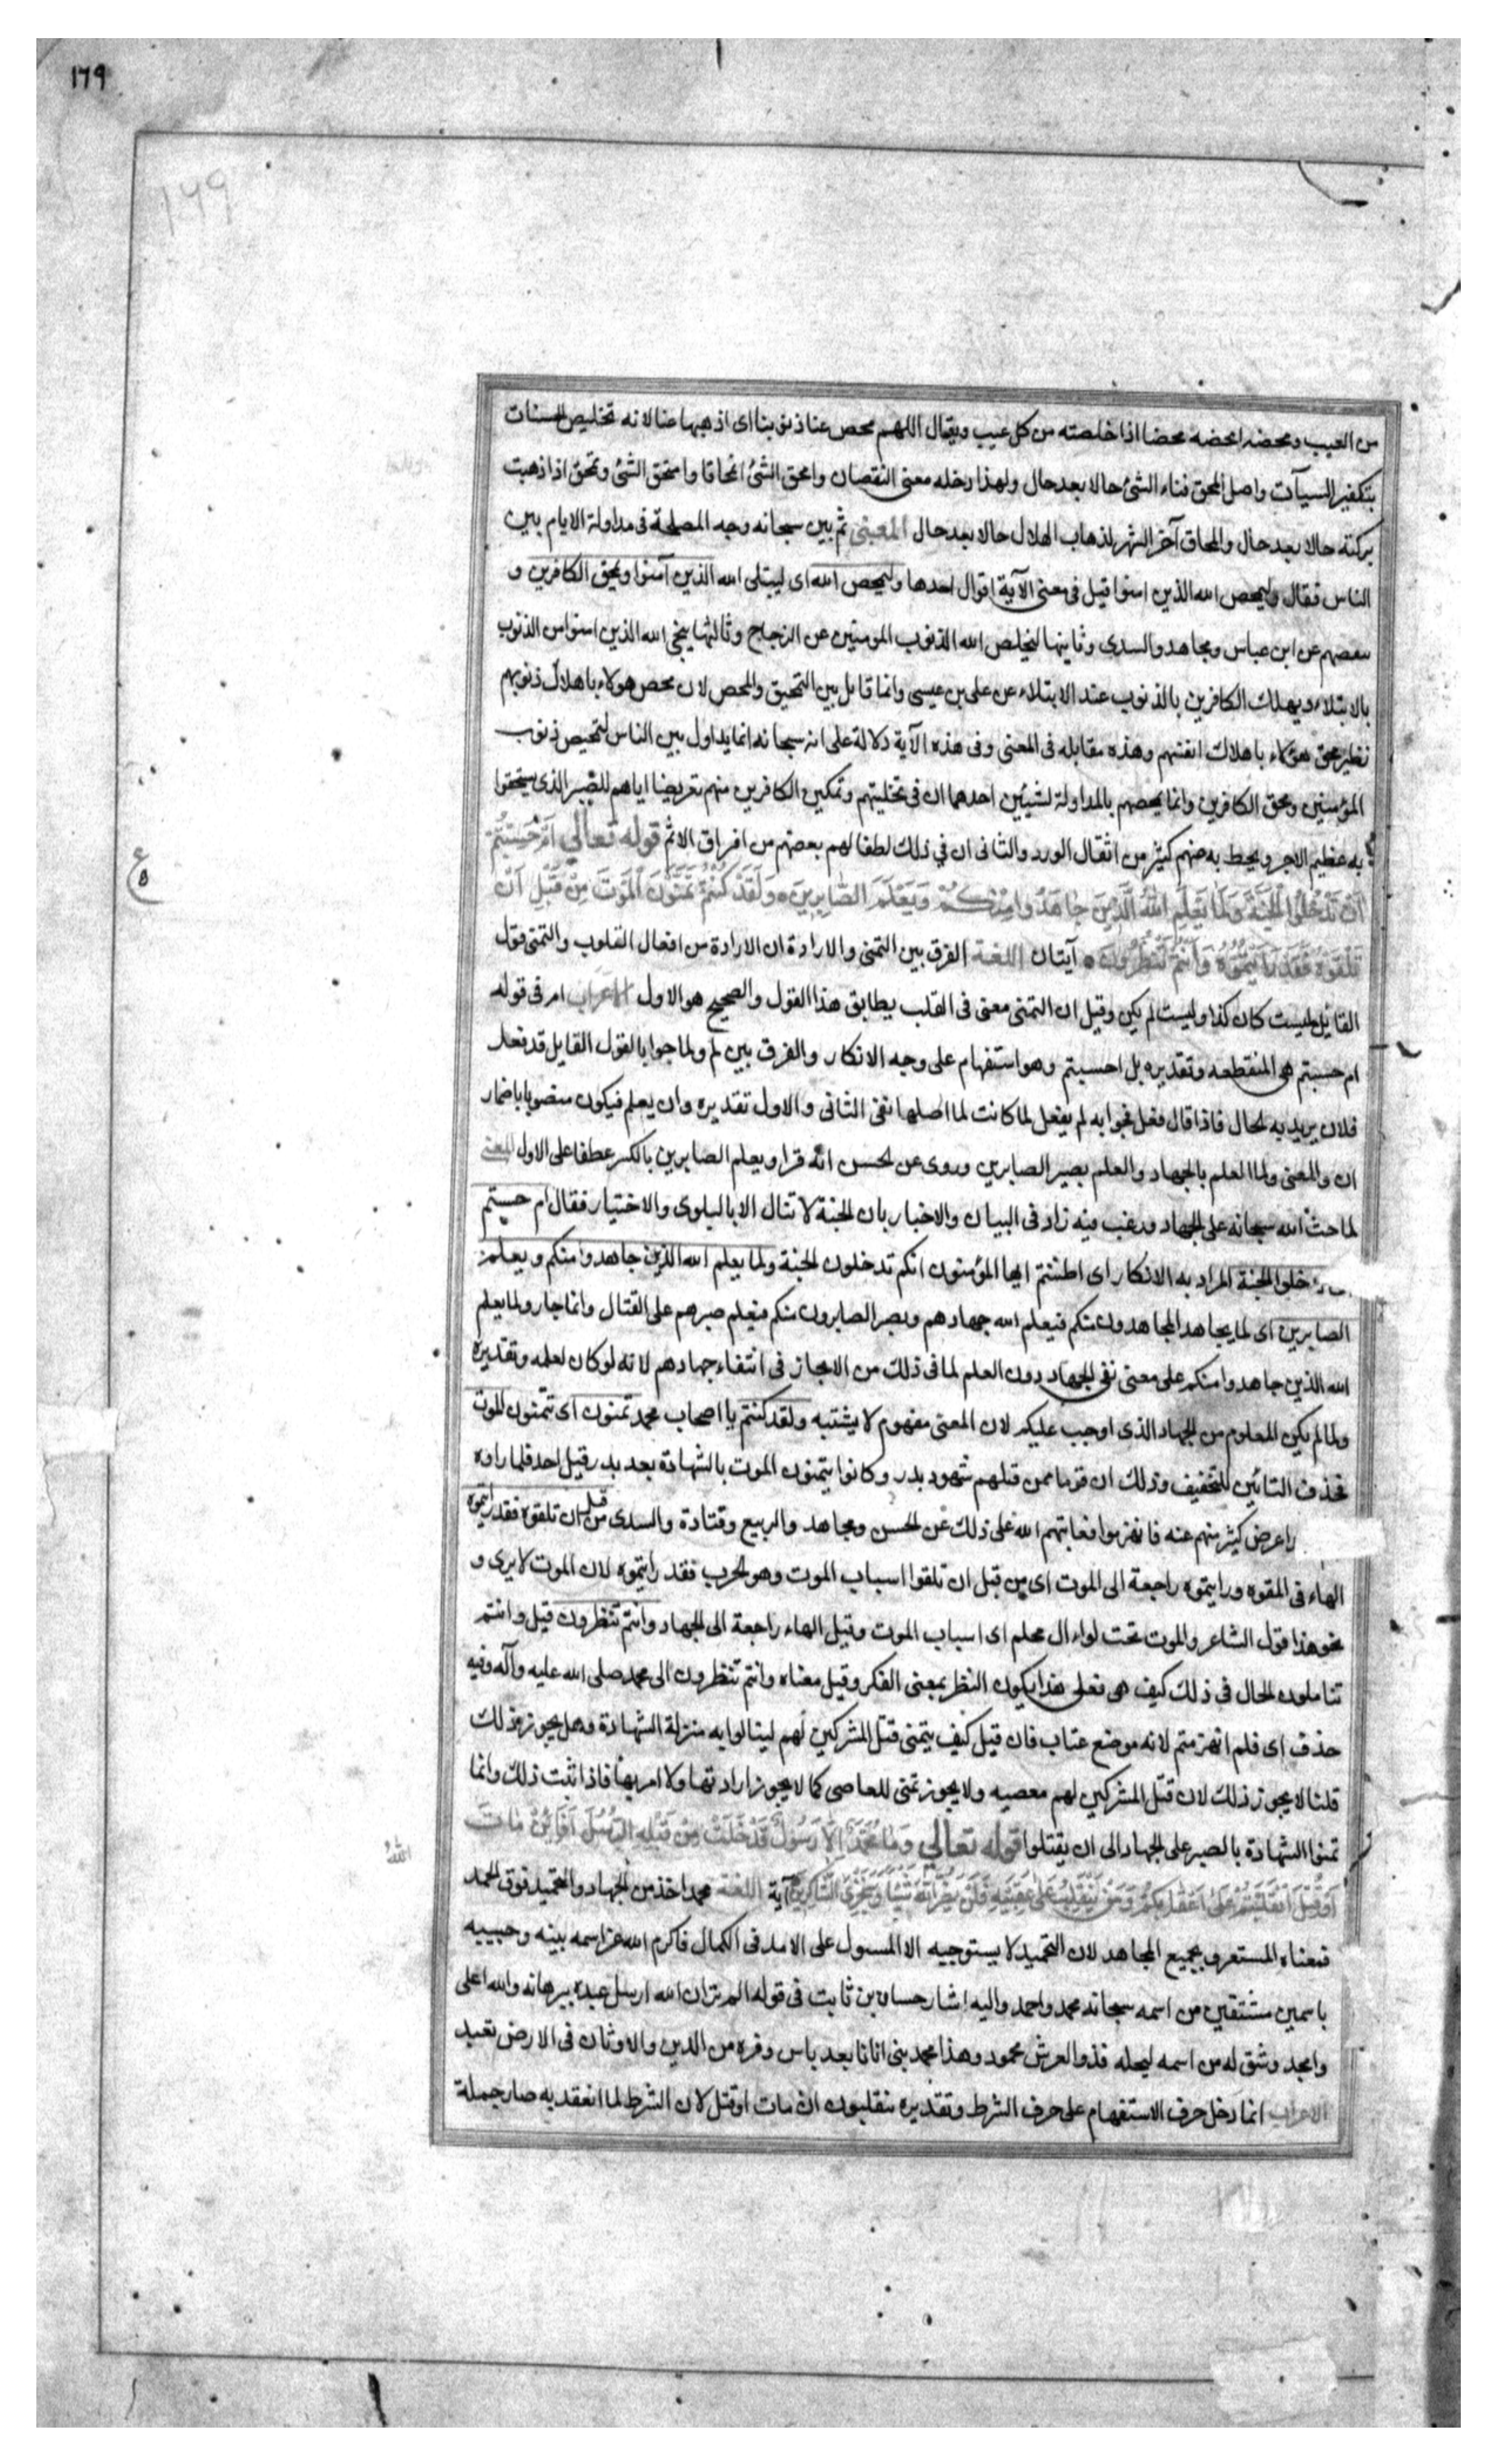 ١٦٩
١٦٩
من العيب ومحضه امحضه محضا اذا خلصته من كل عيب ويقال اللهم محص عنا ذنوبنا اى اذهبها عنا لانه تخليص الحسنات
بتكفير السيآت واصل المحق فناء الشئ حالا بعد حال ولهذا دخله معنى النقصان وامحق الشئ امحاقا وامتحق الشئ وتمحق اذا ذهبت
بركته حالا بعد حال والمحاق آخر الشهر لذهاب الهلال حالا بعد حال المعنى ثم بين سبحانه وجه المصلحة فى مداولة الايام بين
الناس فقال وليمحص الله الذين امنوا قيل فى معنى الآية اقوال احدها وليمحص الله اى ليبتلى الله الذين آمنوا ويمحق الكافرين و
ينقصهم عن ابن عباس ومجاهد والسدى وثانيها ليخلص الله الذنوب المومنين عن الزجاج وثالثها ينجى الله الذين امنوا من الذنوب
بالابتلاء ويهلك الكافرين بالذنوب عند الابتلاء عن على بن عيسى وانما قابل بين التمحيق والمحص لان محص هولاء باهلاك ذنوبهم
نظير محق هؤلاء باهلاك انفسهم وهذه مقابله فى المعنى وفى هذه الآية دلالة على انه سبحانه انما يداول بين الناس لتمحيص ذنوب
المؤمنين ومحق الكافرين وانما يمحصهم بالمداولة لشيئين احدهما ان فى تخليتهم وتمكين الكافرين منهم تعريضا اياهم للصبر الذى يستحقوا
به عظيم الاجر ويحط به عنهم كثير من اثقال الورد والثانى ان في ذلك لطفا لهم بعصمهم من اقراق الاثم قوله تعالي اَمْ حَسِبْتُمْ
اَنْ تَدْخُلُوا الْجَنَّةَ وَلَمَّا يَعْلَمِ اللهُ الَّذِينَ جَاهَدُوا مِنْكُمْ وَيَعْلَمَ الصَّابِرِينَ وَلَقَدْ كُنْتُمْ تَمَنَّوْنَ الْمَوْتَ مِنْ قَبْلِ اَنْ
تَلْقَوْهُ فَقَدْ رَاَيْتُمُوهُ وَاَنْتُمْ تَنْظُرُونَ آيتان اللغة الفرق بين التمنى والارادة ان الارادة من افعال القلوب والتمنى قول
القائل ليت كان كذا وليت لم يكن وقيل ان التمنى معنى فى القلب يطابق هذا القول والصحيح هو الاول الاعراب ام فى قوله
ام حسبتم هى المنقطعه وتقديره بل احسبتم وهو استفهام على وجه الانكار والفرق بين لم ولما جوابا لقول القايل قد فعل
فلان يريد به الحال فاذا قال فعل فجوابه لم يفعل لما كانت لما اصلها نفى الثانى والاول تقديره وان يعلم فيكون منصوبا باضمار
ان والمعنى ولما العلم بالجهاد والعلم بصبر الصابرين وروى عن الحسن انه قرا ويعلم الصابرين بالكسر عطفا على الاول المعنى
لما حث الله سبحانه على الجهاد ورغب فيه زاد فى البيان والاخبار بان الجنة لا تنال الا بالبلوى والاختبار فقال ام حسبتم
دخلوا الجنة المراد به الانكار اى اظننتم ايها المؤمنون انكم تدخلون الجنة ولما يعلم الله الذين جاهدوا منكم ويعلم
الصابرين اى لما يجاهد المجاهدون منكم فيعلم الله جهادهم ويصبر الصابرون منكم فيعلم صبرهم على القتال وانما جاز ولما يعلم
الله الذين جاهدوا منكم على معنى نفى الجهاد دون العلم لما فى ذلك من الايجاز فى انتفاء جهادهم لانه لو كان لعلمه وتقديره
ولما لم يكن المعلوم من الجهاد الذى اوجب عليكم لان المعنى مفهوم لا يشتبه ولقد كنتم يا اصحاب محمد تمنون اى تتمنون الموت
فحذف التائين للتخفيف وذلك ان قوما ممن قبلهم شهود بدر وكانوا يتمنون الموت بالشهادة بعد بدر قبل احد فلما راوه
اعرض كثير منهم عنه فانهزموا فعاتبهم الله على ذلك عن الحسن ومجاهد والربيع وقتادة والسدى من قبل ان تلقوه فقد رايتموه
الهاء فى المقوه ورايتموه راجعة الى الموت اى من قبل ان تلقوا اسباب الموت وهو الحرب فقد رايتموه لان الموت لا يرى و
نحو هذا قول الشاعر والموت تحت لواء ال محلم اى اسباب الموت وقيل الهاء راجعة الى الجهاد وانتم تنظرون قيل وانتم
تتاملون الحال فى ذلك كيف هى فعلى هذا يكون النظر بمعنى الفكر وقيل معناه وانتم تنظرون الى محمد صلى الله عليه وآله وفيه
حذف اى فلم انهزمتم لانه موضع عتاب فان قيل كيف يتمنى قتل المشركين لهم لينالوا به منزلة الشهادة وهل يجوز ذلك
قلنا لا يجوز ذلك لان قتل المشركين لهم معصيه ولا يجوز تمنى المعاصى كما لا يجوز ارادتها ولا امر بها فاذا ثبت ذلك وانما
تمنوا الشهادة بالصبر على الجهاد الى ان يقتلوا قوله تعالي وَمَا مُحَمَّدٌ اِلَّا رَسُولٌ قَدْ خَلَتْ مِنْ قَبْلِهِ الرُّسُلُ اَفَاِئِنْ مَاتَ
اَوْ قُتِلَ انْقَلَبْتُمْ عَلَى اَعْقَابِكُمْ وَمَنْ يَنْقَلِبْ عَلَى عَقِبَيْهِ فَلَنْ يَضُرَّ اللهَ شَيْئًا وَسَيَجْزِى الشَّاكِرِينَ آية اللغة محمد اخذ من الجهاد والتحميد فوق الحمد
فمعناه المستعرق بجميع المجاهد لان التحميد لا يستوجبه الا المسول على الامد فى الكمال فاكرم الله عز اسمه نبيه وحبيبه
باسمين مشتقين من اسمه سبحانه محمد واحمد واليه اشار حسان بن ثابت فى قوله الم تر ان الله ارسل عبده ببرهانه والله اعلى
وامجد وشق له من اسمه ليجله فذو العرش محمود وهذا محمد نبى اتانا بعد باس وفره من الدين والاوثان فى الارض تعبد
الاعراب انما دخل حرف الاستفهام على حرف الشرط وتقديره تنقلبون ان مات او قتل لان الشرط لما انعقد به صار جملة